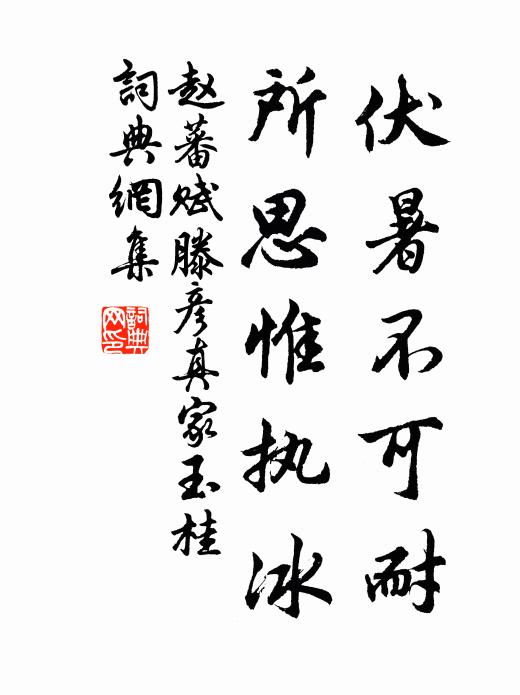 伏暑不可耐
所思惟执冰
赵蕃赋滕彦真家玉桂
詞典網集
詞典
网印